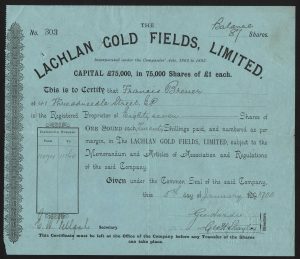 THE
No. 303
Balance
87 Shares.
LACHLAN GOLD FIELDS, LIMITED.
Incorporated under the Companies' Acts, 1862 to 1893.
CAPITAL £75,000, in 75,000 Shares of £1 each.
This is to Certify that Francis
of 41 Threadneedle Street, EC
is the Registered Proprietor of Eighty seven Shares of
ONE POUND each, Shillings paid, and numbered as per
margin, in THE LACHLAN GOLD FIELDS, LIMITED, subject to the
Memorandum and Articles of Association and Regulations
of the said Company.
Given under the Common Seal of the said Company,
this 5th day of January 1900
Secretary.
This Certificate must be left at the Office of the Company before any Transfer of the Shares
can take place.